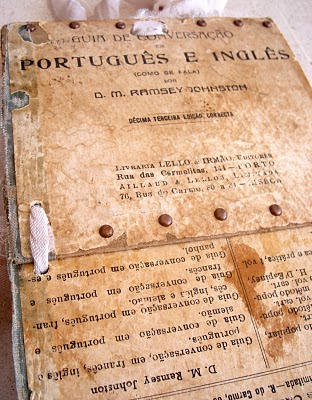 GUIA DE CONVERSAÇÃO
EM
PORTUGUÊS E INGLÊS
(COMO SE FALA)
POR
D. M. RAMSEY JOHNSTON
DÉCIMA TERCEIRA EDIÇÃO, CORRECTA
LIVRARIA LELLO & IRMÃO, EDITORES
Rua das Carmelitas, 144 — PORTO
AILLAUD & LELLOS, LIMITADA
76, Rua do Carmo, 80 a 84 — LISBOA
D. M. Ramsey Johnston
de conversação, em francês, inglês e
português.
Guia de conversação em português e
alemão.
Guia de conversação em português, fran-
cês, inglês e alemão.
Guia de conversação em português e
francês.
Guia de conversação em português e es-
panhol.
popular,
H. D'Espiney,
ca e prática, 1 vol.